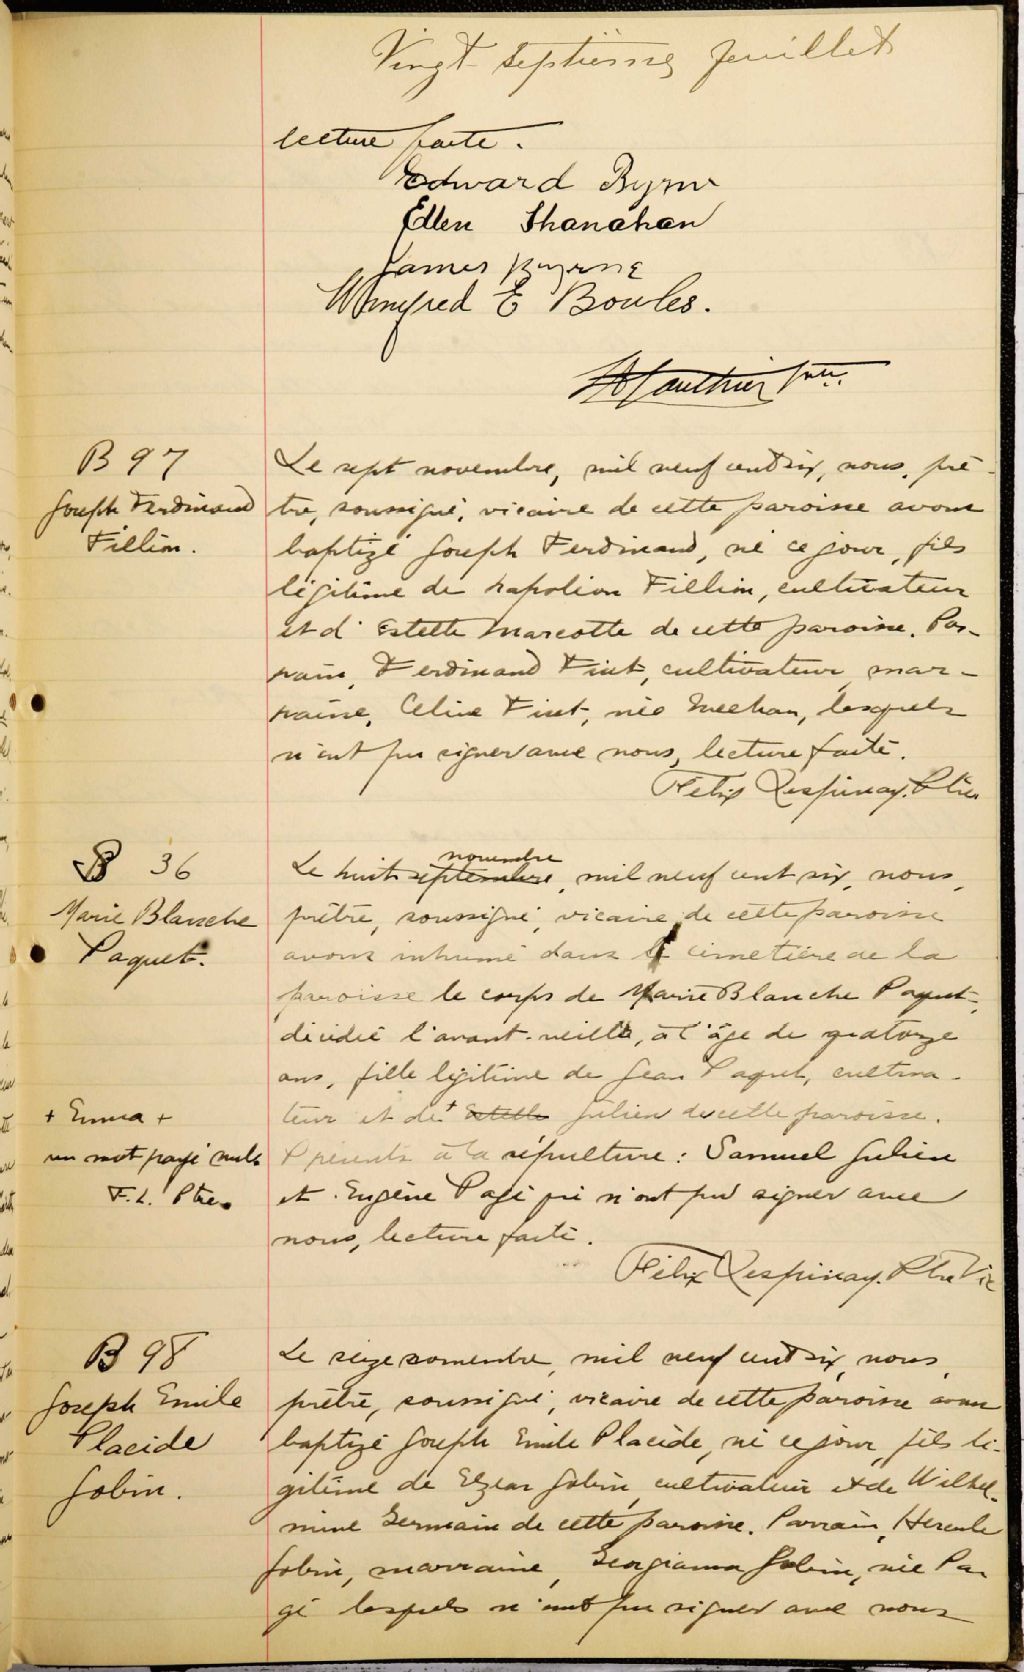 Vingt septième feuillet
lecture faite.
Edward Byrne
Ellen Shanahan
James Byrne
Winifred E Bowles.
Gauthier ptre.
B 97
Joseph Ferdinand
Fillion.
Le sept novembre, mil neuf cent six, nous, prê-
tre, soussigné, vicaire de cette paroisse avons
baptizé Joseph Ferdinand, né ce jour, fils
légitime de Napoléon Fillion, cultivateur
et d'Estelle Marcotte de cette paroisse. Par-
rain, Ferdinand Fiset, cultivateur, mar-
raine, Celina Fiset, née Meehan, lesquels
n'ont pu signer avec nous, lecture faite.
Félix Lespinay. Ptre
B 36
Marie Blanche
Paquet.
novembre
Le huit septembre, mil neuf cent six, nous,
prêtre, soussigné, vicaire de cette paroisse
avons inhumé dans le cimetière de la
paroisse le corps de Marie Blanche Paquet,
décédée l'avant-veille, à l'âge de quatorze
ans, fille légitime de Jean Paquet, cultiva-
teur et de + Estelle Julien de cette paroisse.
+ Emma +
un mot rayé nul
F. L. Ptre
Présents à la sépulture: Samuel Julien
et Eugène Pagé qui n'ont pu signer avec
nous, lecture faite.
Félix Lespinay. Ptre Vic
B 98
Joseph Emile
Placide
Jobin.
Le seize novembre, mil neuf cent six, nous,
prêtre, soussigné, vicaire de cette paroisse avons
baptizé Joseph Emile Placide, né ce jour, fils lé-
gitime de Elzear Jobin, cultivateur et de Wilhel-
mine Germain de cette paroisse. Parrain, Hercule
Jobin, marraine, Georgianna Jobin, née Pa-
gé lesquels n'ont pu signer avec nous